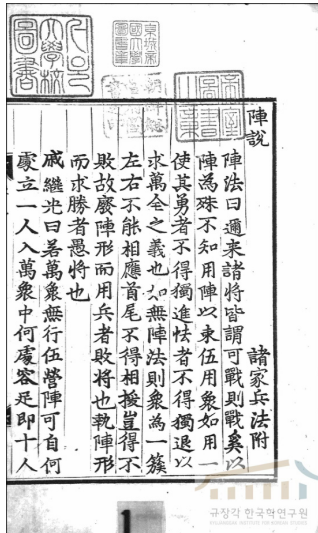 帝室圖書之章
京城帝國大學圖書章
陣說 諸家兵法附
陣法曰邇来諸將皆謂可戰則戰奚以
陣為殊不知用陣以束伍用衆如用一
使其勇者不得獨進怯者不得獨退以
求萬全之義也如無陣法則衆為一簇
左右不能相應首尾不得相援豈得不
敗故廢陣形而用兵者敗將也執陣形
而求勝者愚將也
戚繼光曰若萬衆無行伍營陣可自何
處立一人入萬衆中何處容足即十人
1
규장각 한국학연구원